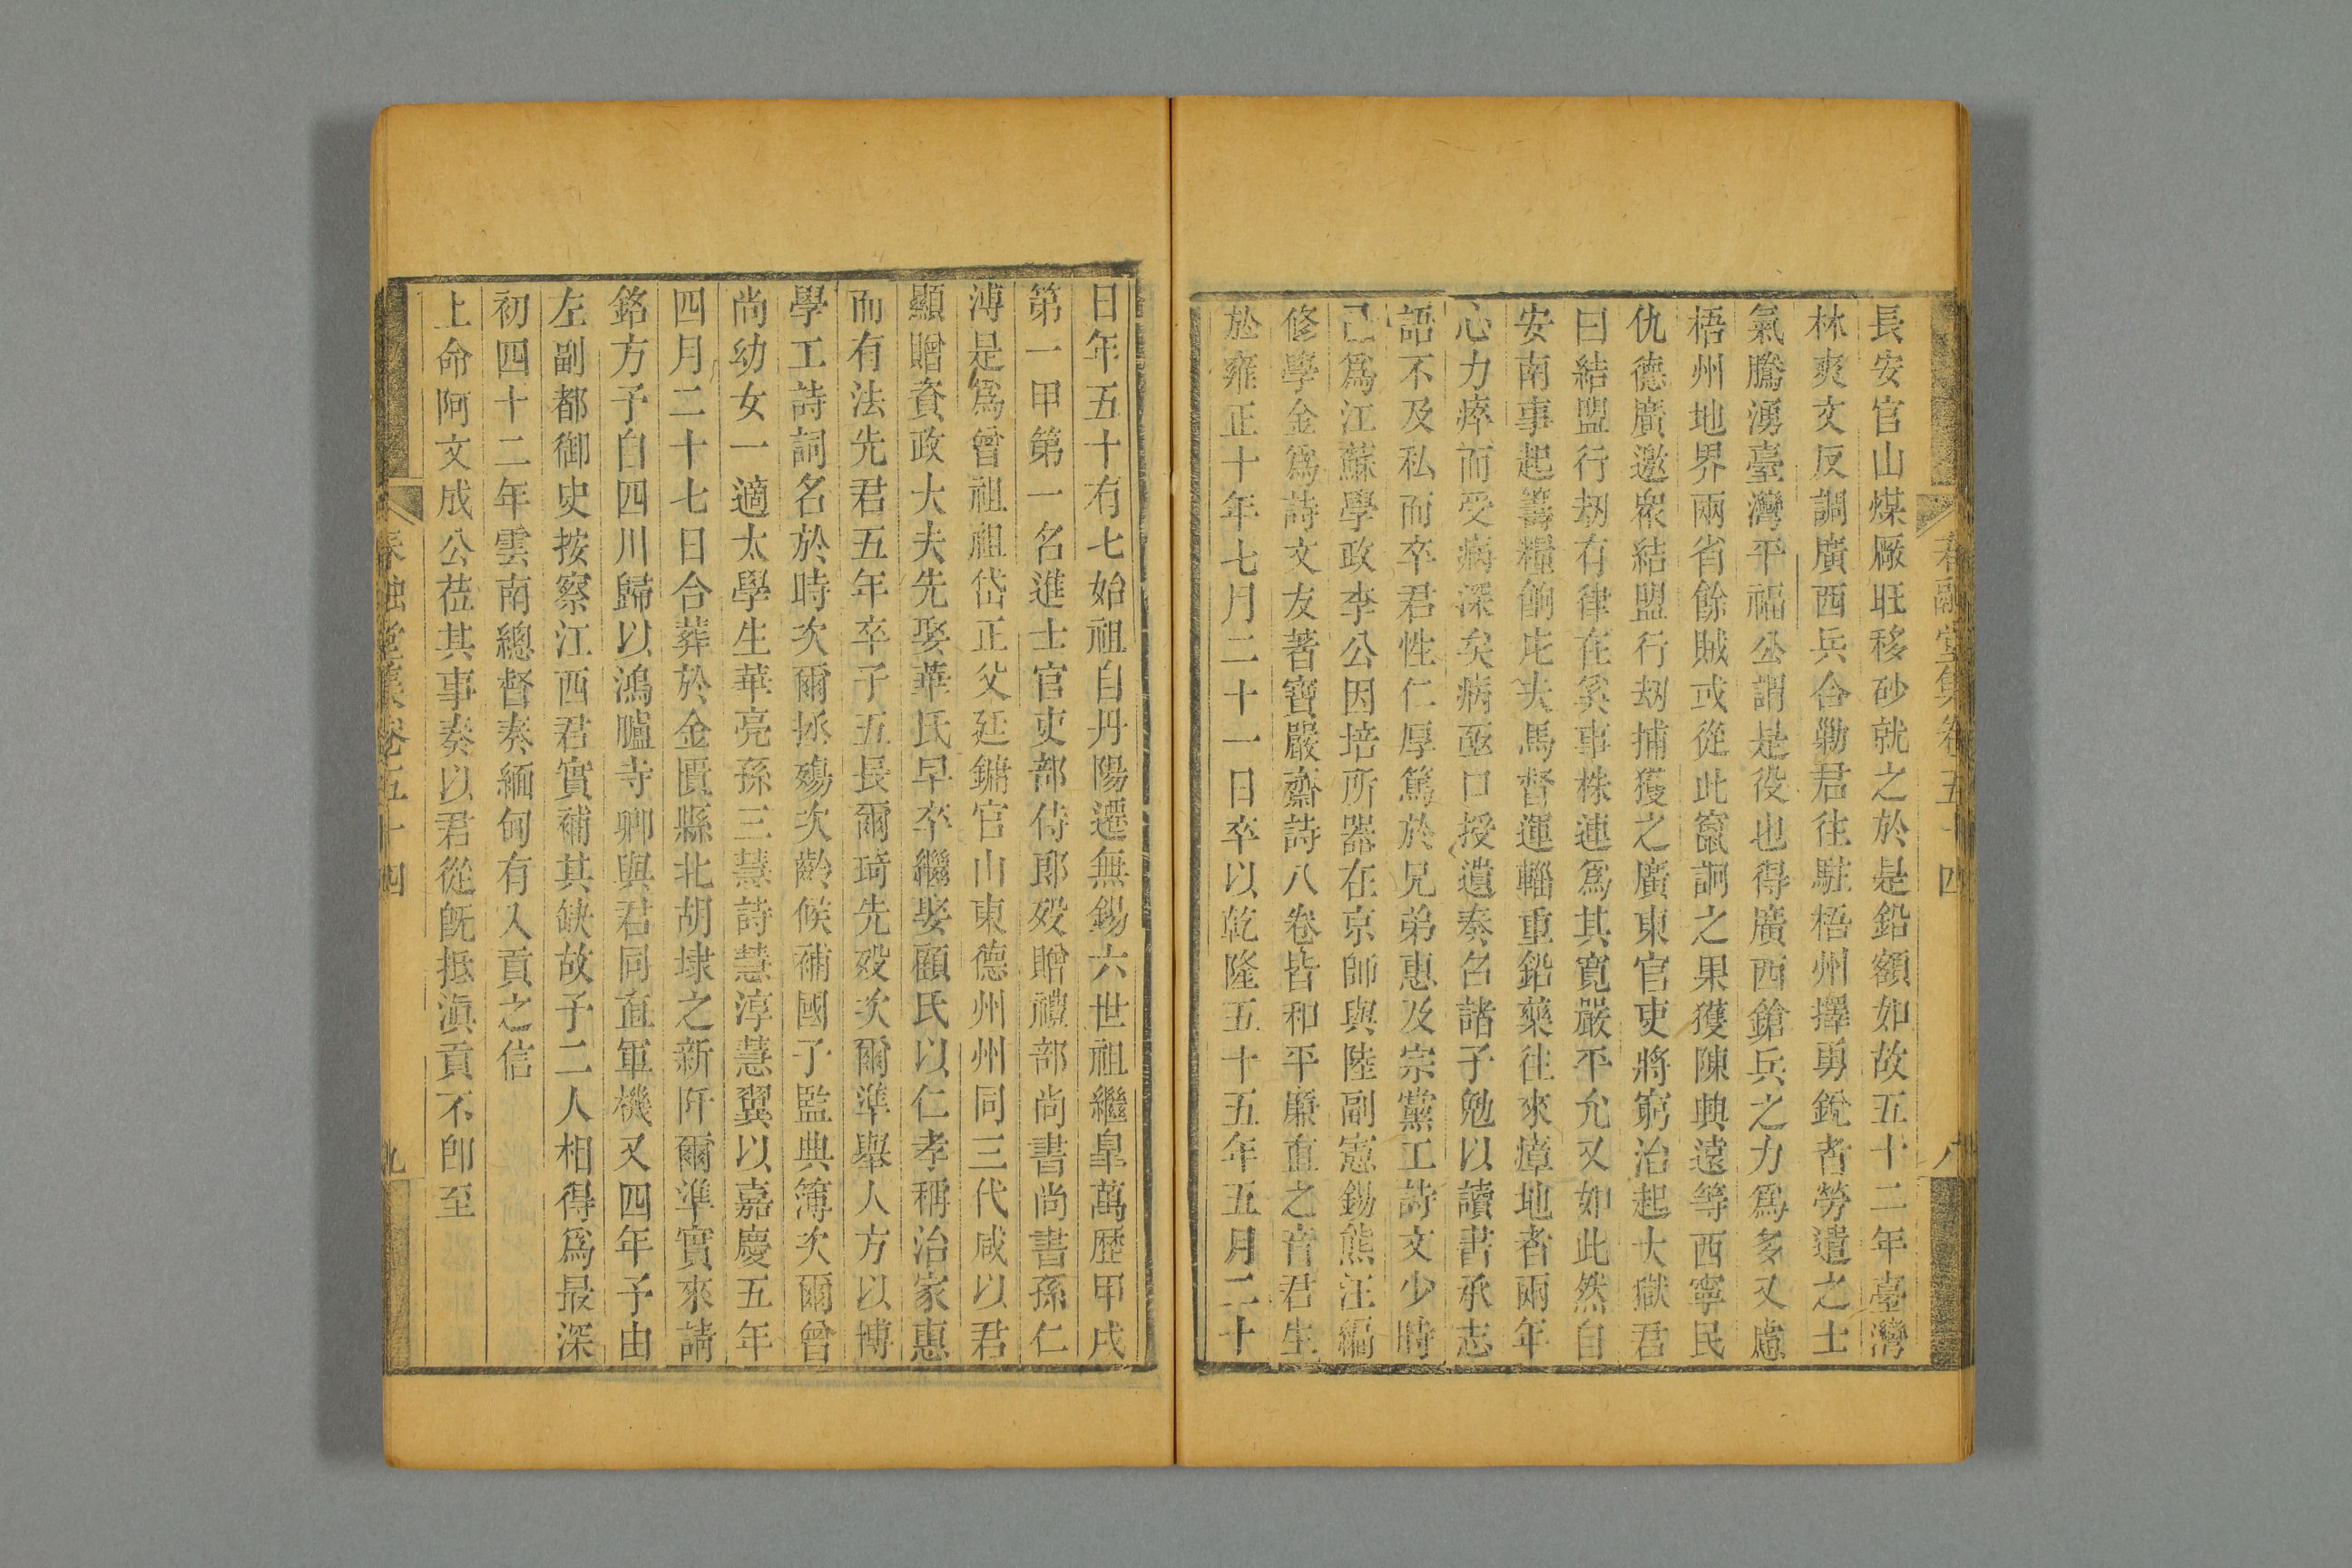 長安官山煤廠旺移砂就之於是鉛額如故五十二年臺灣
林爽文反調廣西兵合勦君往駐梧州擇勇銳者勞遣之士
氣騰湧臺灣平福公謂是役也得廣西鎗兵之力爲多又慮
梧州地界兩省餘賊或從此竄詗之果獲陳典遠等西寧民
仇德廣邀衆結盟行刼捕獲之廣東官吏將窮治起大獄君
曰結盟行刼有律在奚事株連爲其寬嚴平允又如此然自
安南事起籌糧餉庀夫馬督運輜重鉛藥往來瘴地者兩年
心力瘁而受病深矣病亟口授遺奏名諸子勉以讀書承志
語不及私而卒君性仁厚篤於兄弟惠及宗黨工詩文少時
已爲江蘇學政李公因培所器在京師與陸副憲錫熊汪編
修學金爲詩文友著寶嚴齋詩八卷皆和平廉直之音君生
於雍正十年七月二十一日卒以乾隆五十五年五月二十
日年五十有七始祖自丹陽遷無錫六世祖繼皐萬歷甲戌
第一甲第一名進士官吏部侍郎歿贈禮部尚書尚書孫仁
溥是爲曾祖祖岱正父廷鏞官山東德州州同三代咸以君
顯贈資政大夫先娶華氏早卒繼娶顧氏以仁孝稱治家惠
而有法先君五年卒子五長爾琦先歿次爾準舉人方以博
學工詩詞名於時次爾拯殤次齡候補國子監典簿次爾曾
尚幼女一適太學生華亮孫三慧詩慧淳慧翼以嘉慶五年
四月二十七日合葬於金匱縣北胡埭之新阡爾準實來請
銘方予自四川歸以鴻臚寺卿與君同直軍機又四年予由
左副都御史按察江西君實補其缺故予二人相得爲最深
初四十二年雲南總督奏緬甸有入貢之信
上命阿文成公莅其事奏以君從旣抵滇貢不卽至
春融堂集卷五十四
九